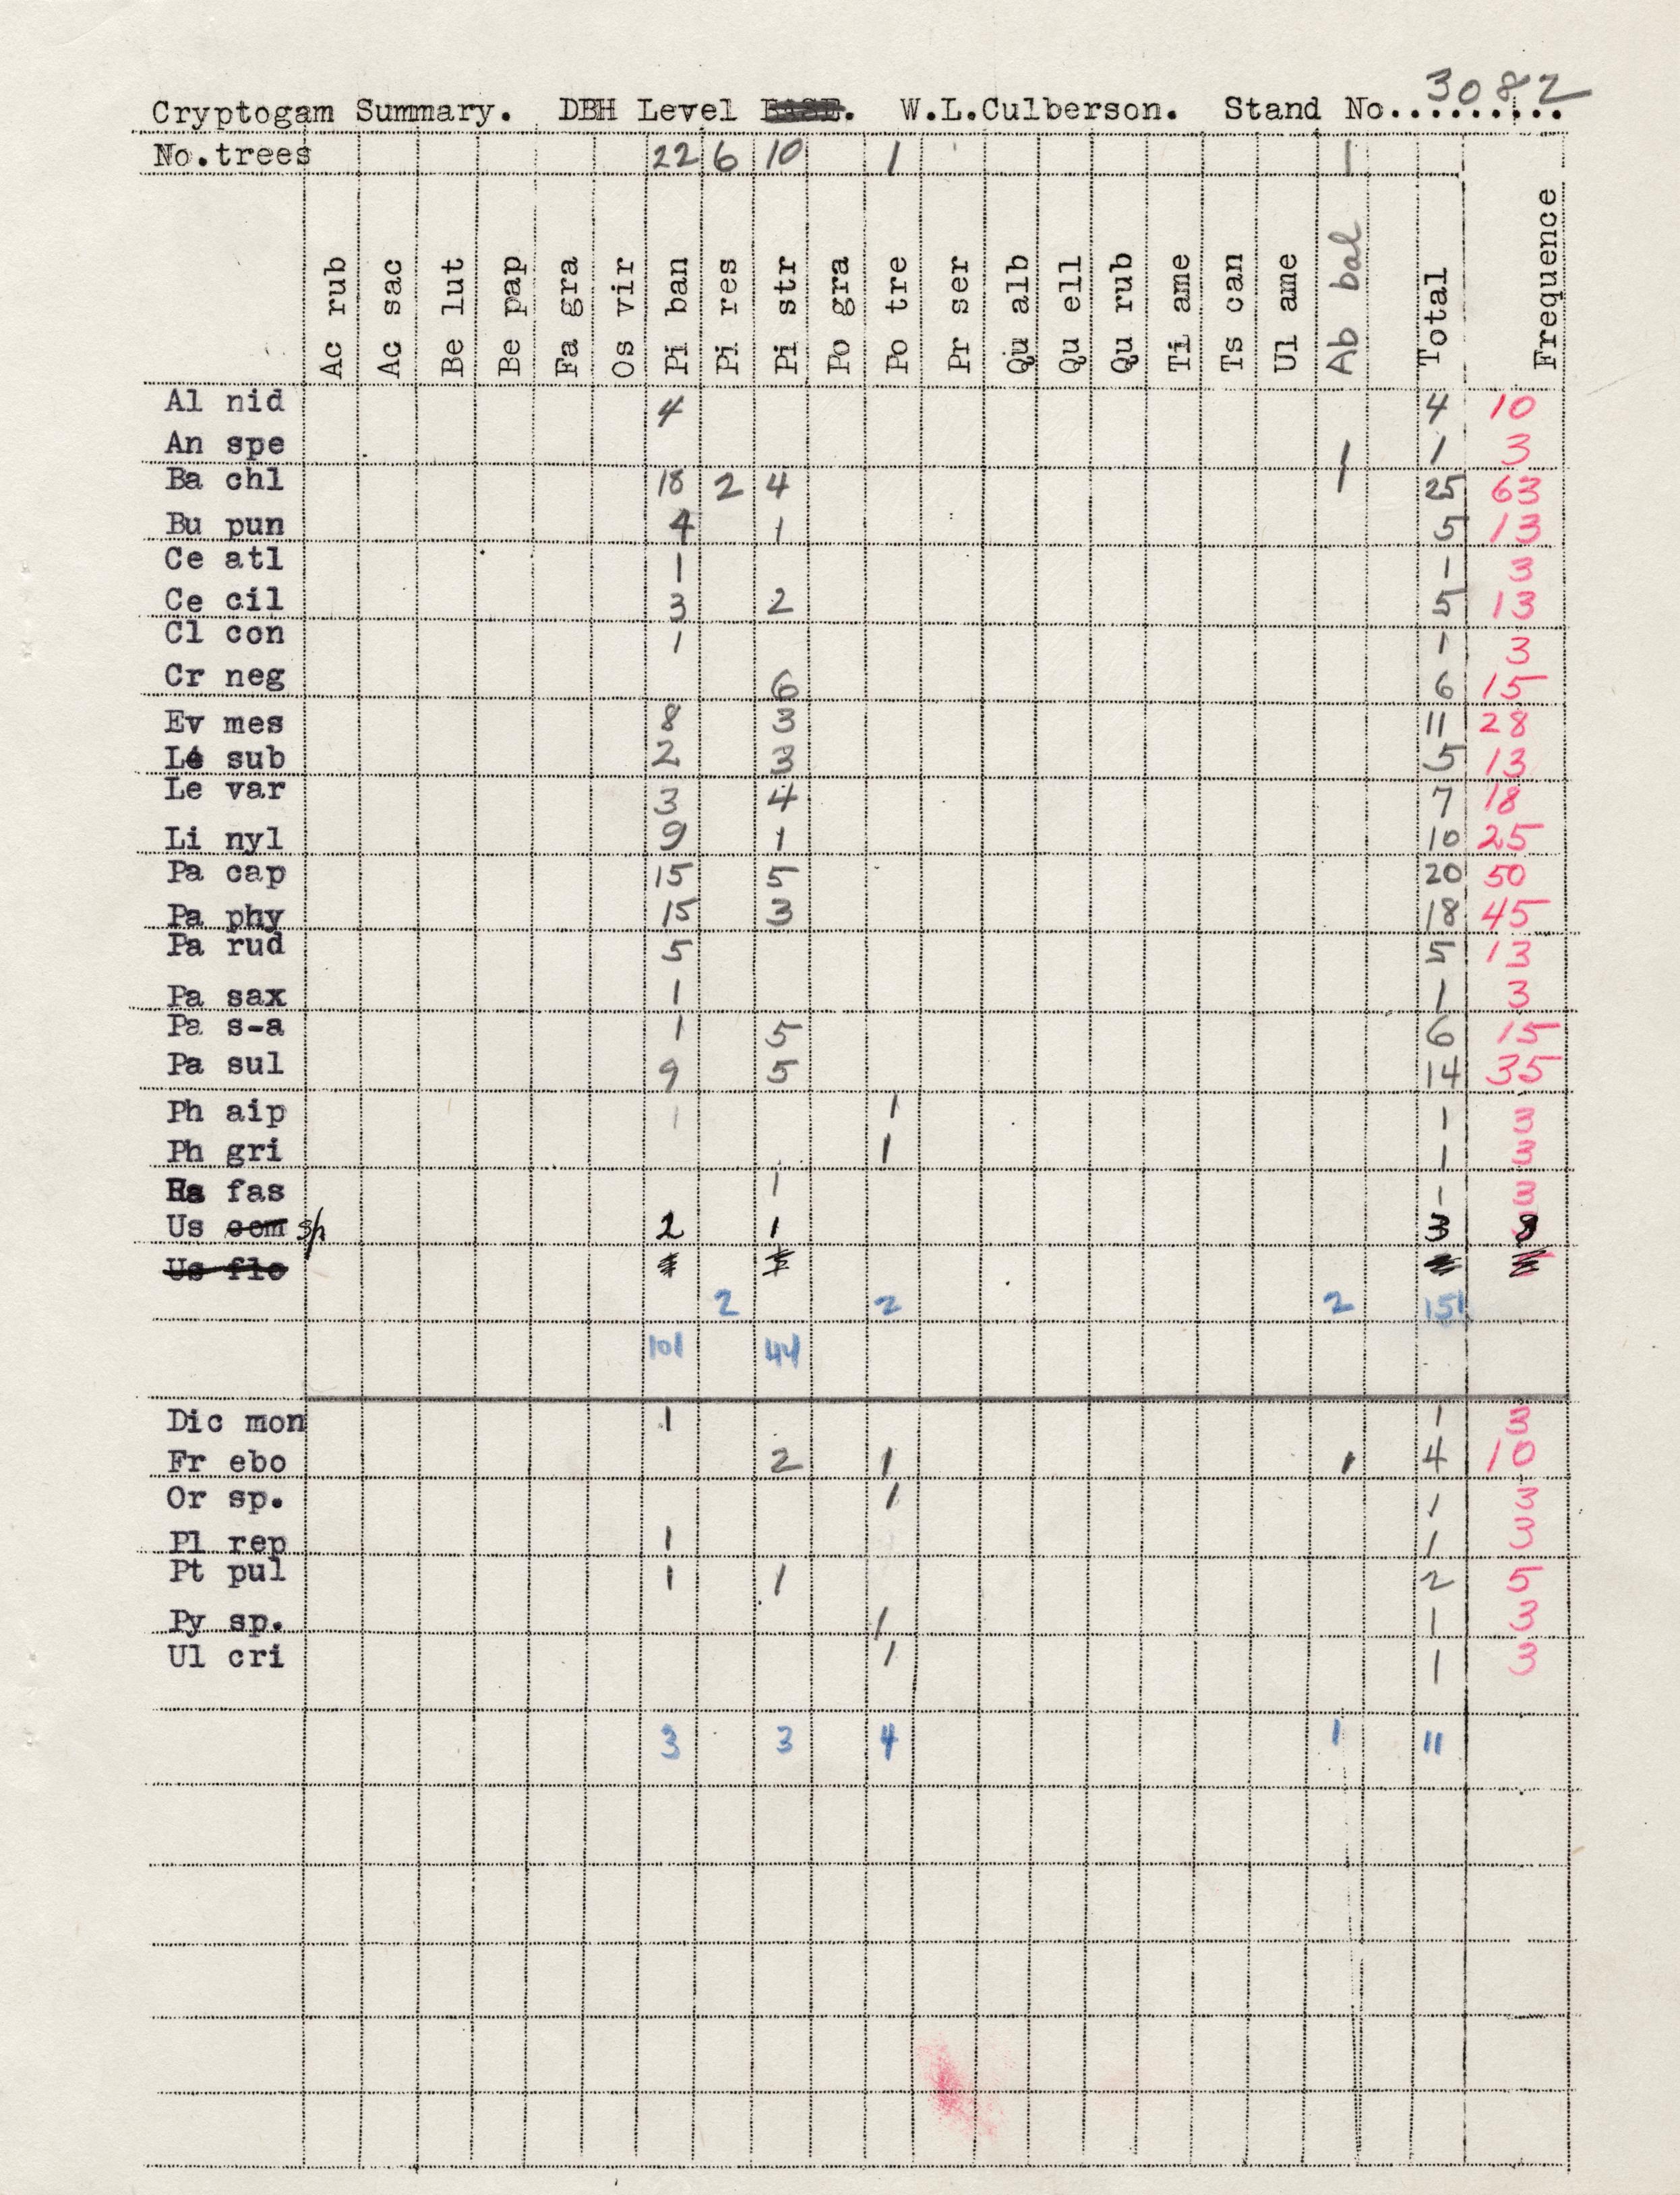 Cryptogam Summary. DBH Level BASE. W.L.Culberson. Stand No.3082
No.trees 22 6 10 1 1
Ac rub Ac sac Be lut Be pap Fa gra Os vir Pi ban Pi res Pi str Po gra Po tre Pr ser Qu alb Qu ell Qu rub Ti ame Ts can Ul ame Ab bal Total Frequence
Al nid 4 4 10
An spe 1 1 3
Ba chl 18 2 4 1 25 63
Bu pun 4 1 5 13
Ce atl 1 1 3
Ce cil 3 2 5 13
Cl con 1 1 3
Cr neg 6 6 15
Ev mes 8 3 11 28
Le sub 2 3 5 13
Le var 3 4 7 18
Li nyl 9 1 10 25
Pa cap 15 5 20 50
Pa phy 15 3 18 45
Pa rud 5 5 13
Pa sax 1 1 3
Pa s-a 1 5 6 15
Pa sul 9 5 14 35
Ph aip 1 1 1 3
Ph gri 1 1 3
fas 1 1 3
Us com sp 2 1 3 8
Us flo
2 2 2 151
101 44
Dic mon 1 1 3
Fr ebo 2 1 1 4 10
Or sp. 1 1 3
Pl rep 1 1 3
Pt pul 1 1 2 5
Py sp. 1 1 3
Ul cri 1 1 3
3 3 4 1 11